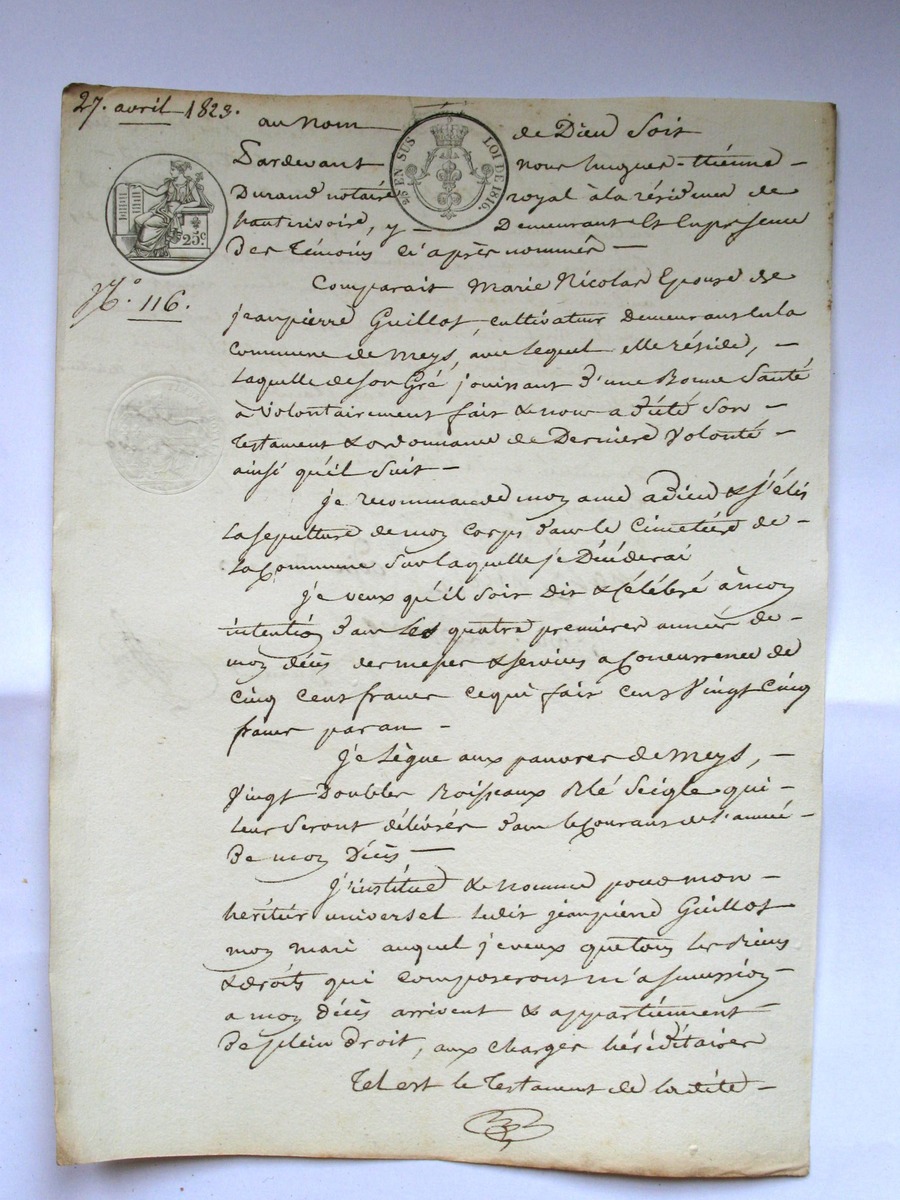 27. avril 1823.
au Nom de Dieu Soit
EN SUS LOI DE 1816.
Pardevant nous hugues-étiénne -
Durand notaire royal à la résidence de
hauterivoire, y - Demeurant Et En presence
Des Témoins Ci après nommés -
25c
N.° 116.
Comparait Marie Nicolas Epouse de
jeanpierre Guillot, cultivateur Demeurans En la
Commune de Meys, avec lequel elle réside, -
Laquelle de Son Gré, jouissant d'une Bonne Santé
à Volontairement fait & nous a dicté Son -
Testament & ordonnance de Derniere Volonté -
ainsi qu'il Suit -
je recommande moy ame a Dieu & j'élis
La sepulture de moy Corps dans le Cimetière de -
La Commune Sur laquelle je Décéderai
je veux qu'il Soit dit & Célébré à moy
intentioy dans les quatre premieres années de -
moy décès des messes & services a Concurrence de
Cinq Cens francs Ce qui fait Cens Vingt Cinq
francs par an -
je Lègue aux pauvres de Meys, -
Vingt Doubles Boisseaux Blé Seigle qui -
Leur Seront délivrés dans le Courans de l'année -
De moy Décès -
J'institue & Nomme pour mon -
héritier universel Ledit jeanpierre Guillot
moy mari auquel je veux que tous les Biens
& droits qui Composerons m'a Successioy -
a moy décès arrivent & appartiennent -
De plein Droit, aux Charges héréditaires
Tel est le Testament de la dite -